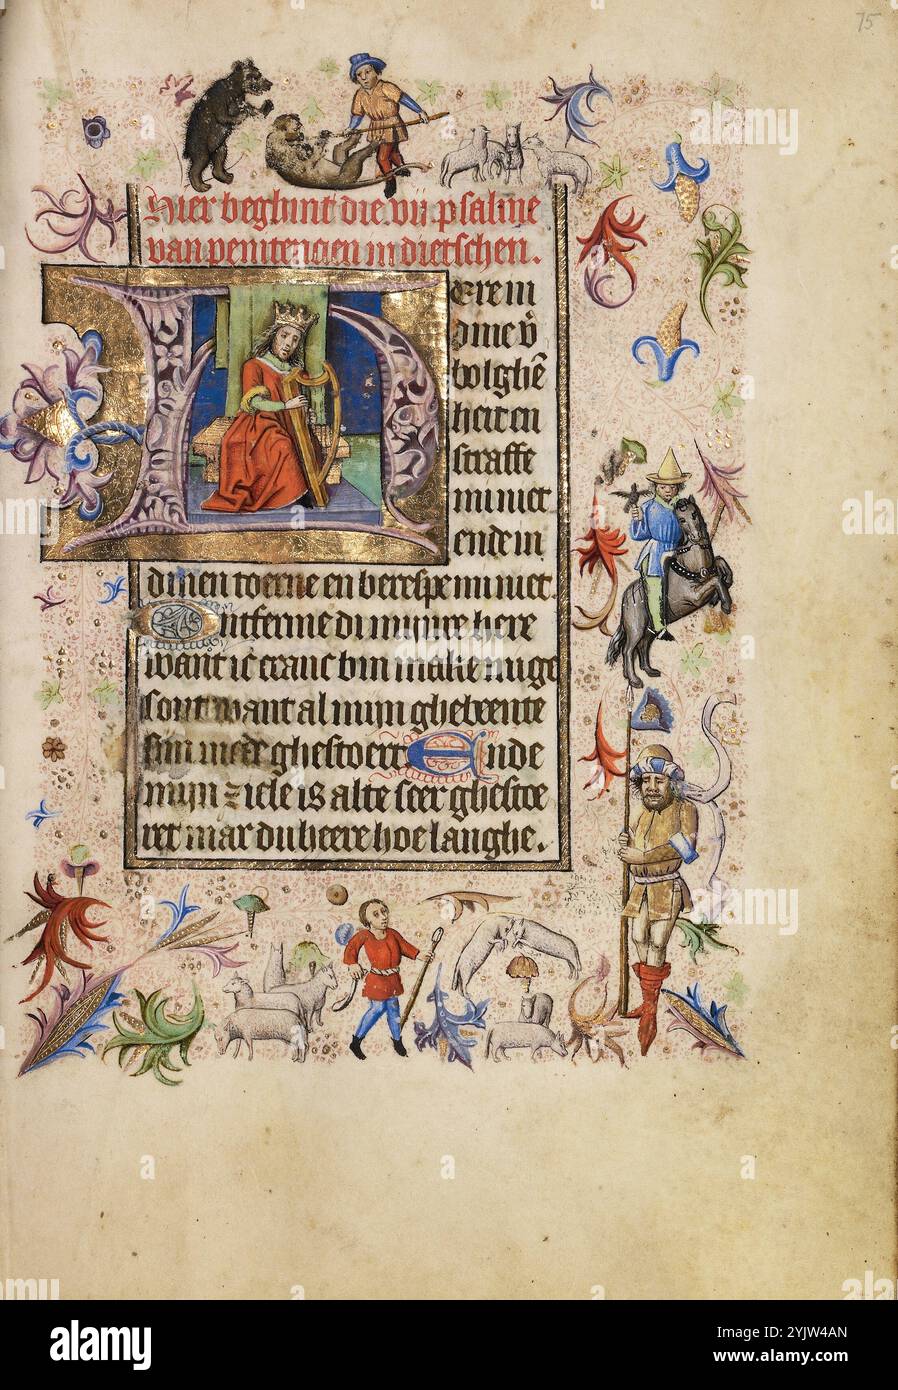 75
Hier beghint die vij psalme
van penitencien in dietschen.
Here in
dine v̄
bolghē
heit en
straffe
mi niet
ende in
dinen toerne en berespe mi niet.
Ontferme di mijnre here
want ic cranc bin make mi ge
sont want al mijn ghebeente
sijn mede ghestoert Ende
mijn ziele is alte seer ghestoe
ret mar du heere hoe langhe.
alamy
Image ID: 2YJW4AN
www.alamy.com